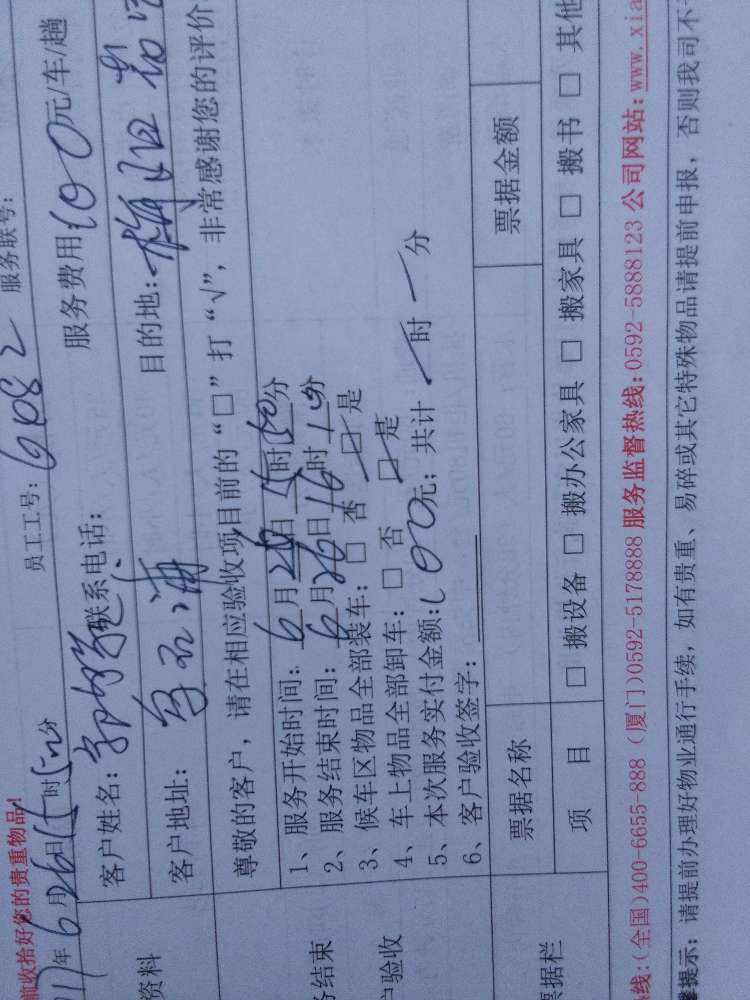 前收拾好您的贵重物品!
年6月26日15时50分 员工工号: 6082 服务联号:
资料
客户姓名: 联系电话: 服务费用100元/车/趟
客户地址: 目的地:
尊敬的客户，请在相应验收项目前的“□”打“√”，非常感谢您的评价
务结束
户验收
1、服务开始时间: 6月26日15时50分
2、服务结束时间: 6月26日16时10分
3、候车区物品全部装车: □ 否 ☑ 是
4、车上物品全部卸车: □ 否 ☑ 是
5、本次服务实付金额: 100元; 共计 / 时 / 分
6、客户验收签字:
票据栏
票据名称 票据金额
项 目 □ 搬设备 □ 搬办公家具 □ 搬家具 □ 搬书 □ 其他
线:(全国)400-6655-888 (厦门)0592-5178888 服务监督热线:0592-5888123 公司网站:www.xia
馨提示: 请提前办理好物业通行手续，如有贵重、易碎或其它特殊物品请提前申报，否则我司不